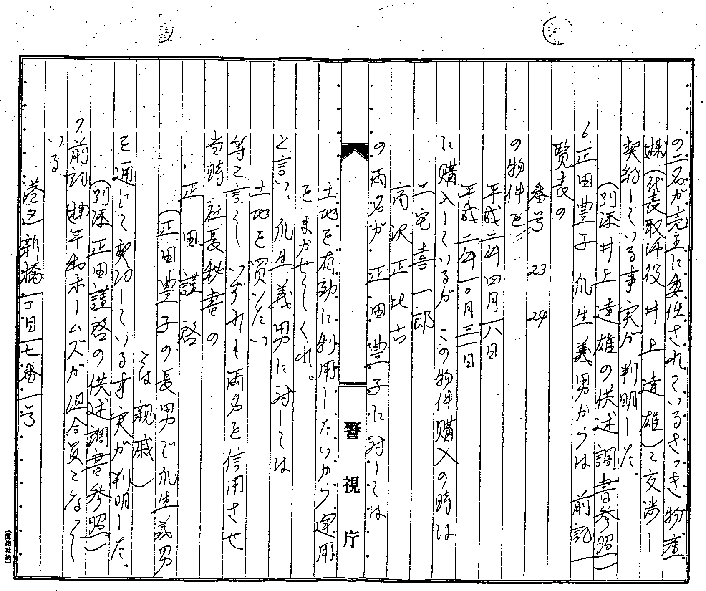 の二名が完全に委任されているさつき物産
㈱(代表取締役 井上達雄)と交渉し
契約している事実が判明した
(別添井上達雄の供述調書参照)
6 正田豊子 義男からは前記一
覧表の
番号 23 24
の物件を
平成二年四月一八日
平成二年一〇月三一日
に購入しているが この物件購入の時は
二宅喜一郎
高沢正比古
の両名が 正田豊子に対しては
土地を有効に利用したいから運用
をまかせてくれ。
と言い、義男に対しては
土地を買いたい
等と言って いずれも両名を信用させ
当時 社長秘書の
正田謹啓
(正田豊子の長男で 義男
とは親戚)
を通じて契約している事実が判明した。
(別添正田謹啓の供述調書参照)
7 前記㈱ ホームズが組合員となって
いる
港区新橋 丁目七番 号
警視庁